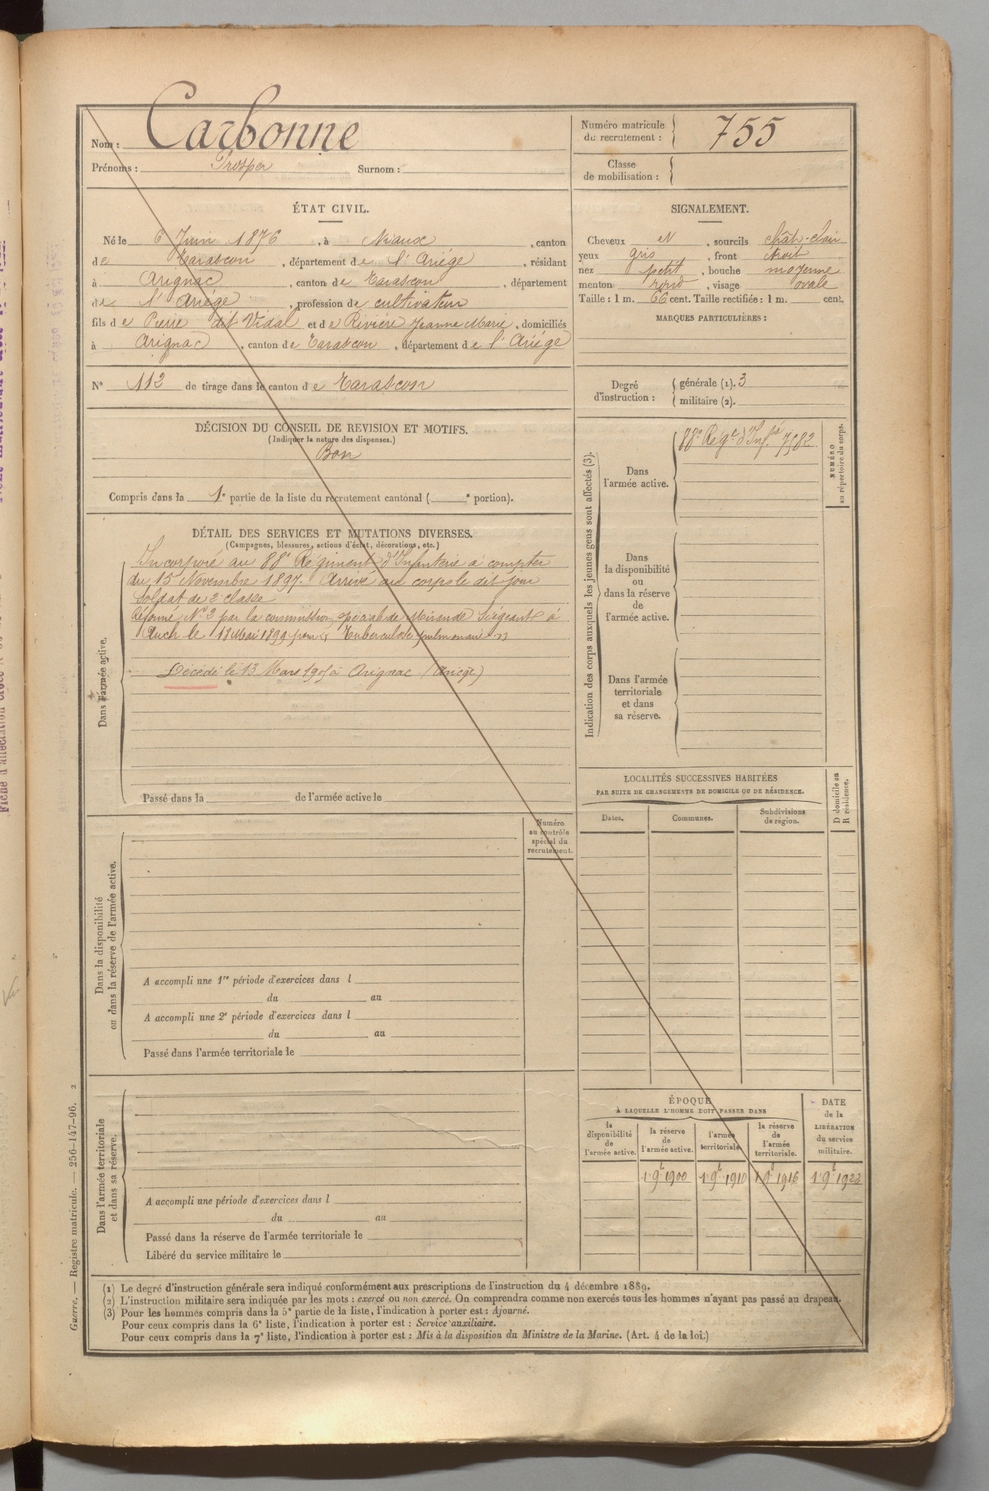 Nom : Carbonne
Prénoms : Prosper Surnom :
Numéro matricule du recrutement : 755
Classe de mobilisation :
ÉTAT CIVIL.
Né le 6 Juin 1876, à Niaux, canton
de Tarascon, département de l'Ariège, résidant
à Arignac, canton de Tarascon, département
de l'Ariège, profession de cultivateur
fils de Pierre dit Vidal et de Rivière Jeanne Marie, domiciliés
à Arignac, canton de Tarascon, département de l'Ariège
N° 112 de tirage dans le canton de Tarascon
SIGNALEMENT.
Cheveux et, sourcils chât-clair
yeux gris, front étroit
nez petit, bouche moyenne
menton rond, visage ovale
Taille : 1 m. 66 cent. Taille rectifiée : 1 m. cent.
MARQUES PARTICULIÈRES :
Degré d'instruction : générale (1). 3
militaire (2).
DÉCISION DU CONSEIL DE REVISION ET MOTIFS.
(Indiquer la nature des dispenses.)
Bon
Compris dans la 1e partie de la liste du recrutement cantonal ( e portion).
DÉTAIL DES SERVICES ET MUTATIONS DIVERSES.
(Campagnes, blessures, actions d'éclat, décorations, etc.)
Dans l'armée active.
Incorporé au 88e Régiment d'Infanterie à compter
du 15 Novembre 1897. Arrivé au corps le dit jour
Soldat de 2e classe
Réformé N° 2 par la commission spéciale de Mirande siégeant à
Auch le 18 Mai 1899 pour " Tuberculose pulmonaire "
Décédé le 13 Mars 1901 à Arignac (Ariège)
Passé dans la de l'armée active le
Indication des corps auxquels les jeunes gens sont affectés (3).
Dans l'armée active.
88e Regt d'Infie 7582
NUMÉRO au répertoire du corps.
Dans la disponibilité ou dans la réserve de l'armée active.
Dans l'armée territoriale et dans sa réserve.
LOCALITÉS SUCCESSIVES HABITÉES
PAR SUITE DE CHANGEMENTS DE DOMICILE OU DE RÉSIDENCE.
Dates. Communes. Subdivisions de région. D domicile ou R résidence.
Numéro au contrôle spécial du recrutement.
Dans la disponibilité ou dans la réserve de l'armée active.
A accompli une 1re période d'exercices dans l
du au
A accompli une 2e période d'exercices dans l
du au
Passé dans l'armée territoriale le
Dans l'armée territoriale et dans sa réserve.
A accompli une période d'exercices dans l
du au
Passé dans la réserve de l'armée territoriale le
Libéré du service militaire le
ÉPOQUE
À LAQUELLE L'HOMME DOIT PASSER DANS
la disponibilité de l'armée active. la réserve de l'armée active. l'armée territoriale. la réserve de l'armée territoriale. DATE de la LIBÉRATION du service militaire.
1 9e 1900 1 9e 1910 1 9e 1916 1 9e 1922
(1) Le degré d'instruction générale sera indiqué conformément aux prescriptions de l'instruction du 4 décembre 1889.
(2) L'instruction militaire sera indiquée par les mots : exercé ou non exercé. On comprendra comme non exercés tous les hommes n'ayant pas passé au drapeau.
(3) Pour les hommes compris dans la 5e partie de la liste, l'indication à porter est : Ajourné.
Pour ceux compris dans la 6e liste, l'indication à porter est : Service auxiliaire.
Pour ceux compris dans la 7e liste, l'indication à porter est : Mis à la disposition du Ministre de la Marine. (Art. 4 de la loi.)
Guerre. — Registre matricule. — 256-147-96. 2